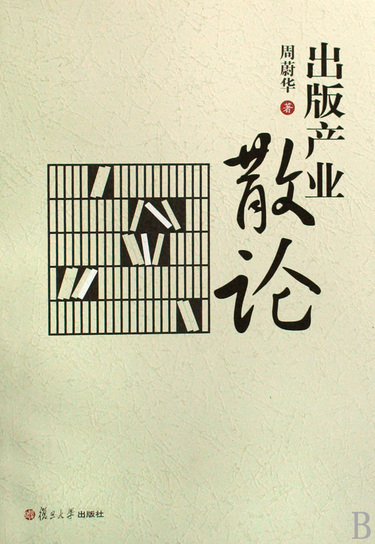 出版产业
散论
周蔚华 著
复旦大学出版社
B